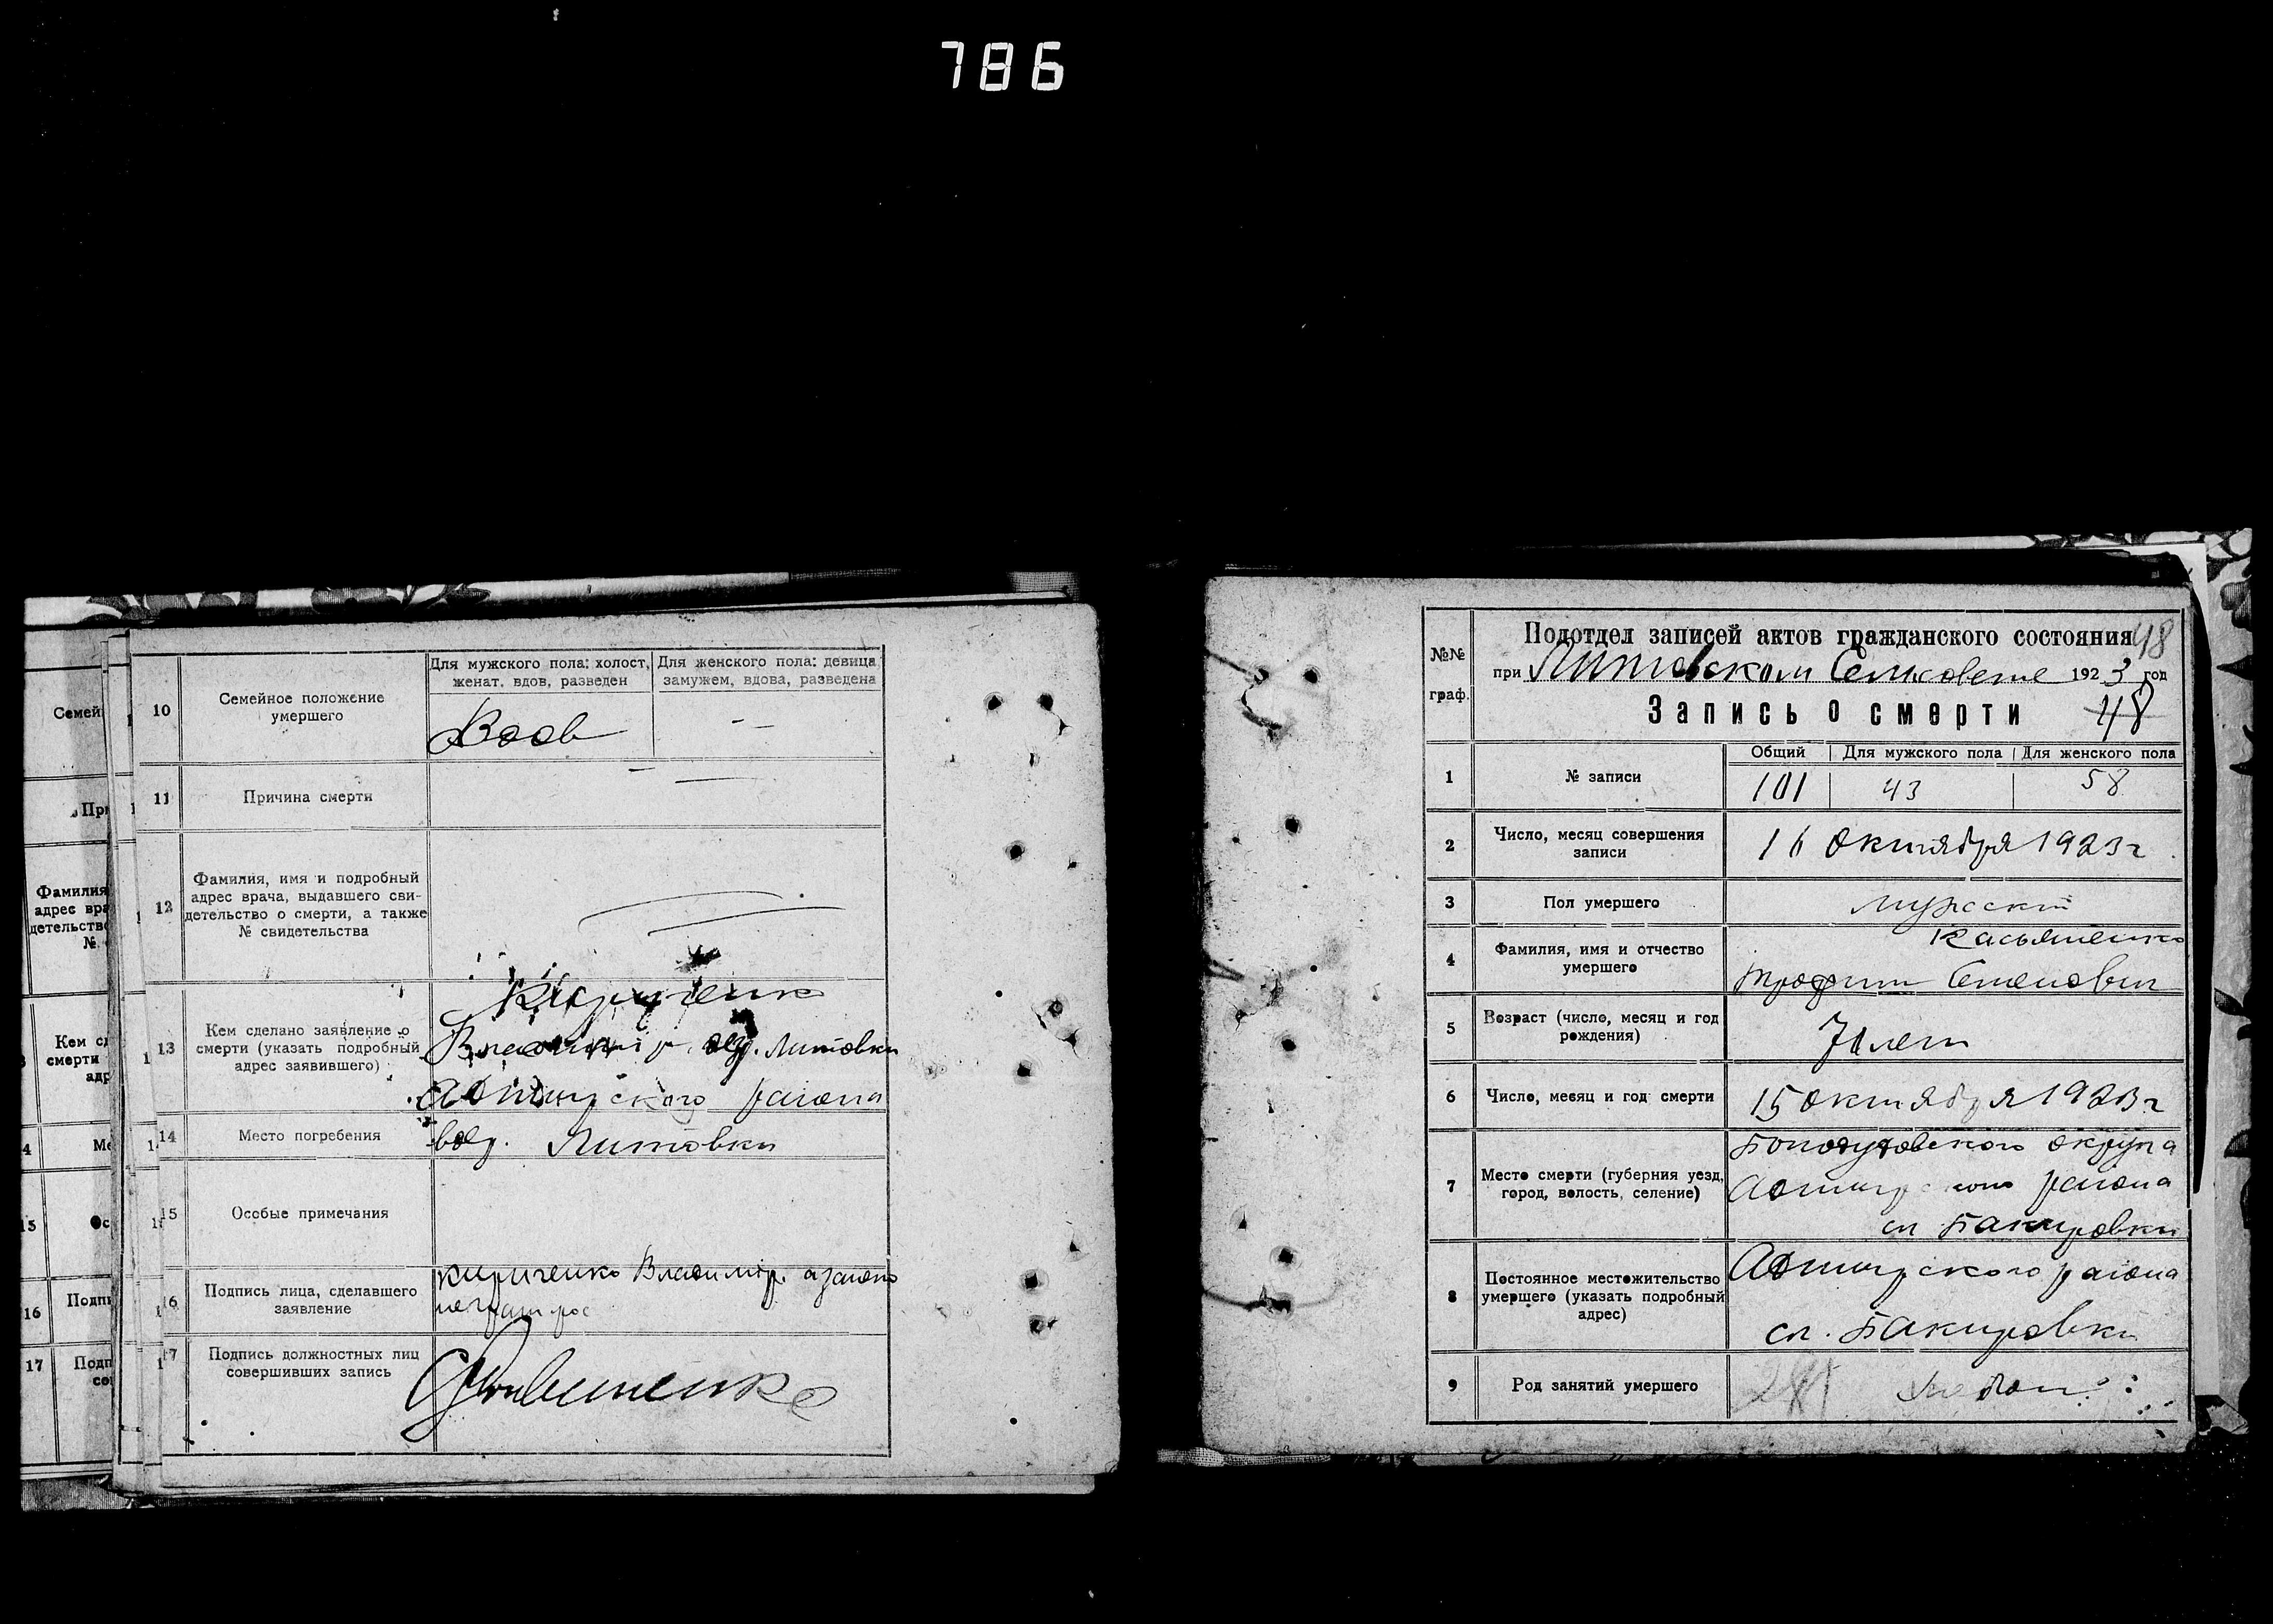 786
Семей
При
Фамилия
адрес вра
детельство
№
Кем сд
смерти
адр
4 Ме
15 Ос
16 Подпи
17 Подп
со
10 Семейное положение умершего
Для мужского пола: холост, женат, вдов, разведен
Для женского пола: девица замужем, вдова, разведена
Вдов
— —
11 Причина смерти
12 Фамилия, имя и подробный
адрес врача, выдавшего сви-
детельство о смерти, а также
№ свидетельства
13 Кем сделано заявление о
смерти (указать подробный
адрес заявившего)
Кириченко
Владимир Литовки
Ахтырского района
14 Место погребения
Литовки
15 Особые примечания
16 Подпись лица, сделавшего
заявление
Кириченко Владимір. а за его
17 Подпись должностных лиц
совершивших запись
№№
граф.
Подотдел записей актов гражданского состояния 48
при Литовском Сельсовете 1923 год
Запись о смерти 48
1 № записи
Общий Для мужского пола Для женского пола
101 43 58
2 Число, месяц совершения
записи
16 октября 1923 г
3 Пол умершего
мужскт
4 Фамилия, имя и отчество
умершего
Касьяненко
Трофим Семенович
5 Возраст (число, месяц и год
рождения)
лет
6 Число, месяц и год смерти
15 октября 1923 г
7 Место смерти (губерния уезд,
город, волость, селение)
Богодуховского округа
района
сл Бакировки
8 Постоянное местожительство
умершего (указать подробный
адрес)
Ахтырского района
сл. Бакировки
9 Род занятий умершего